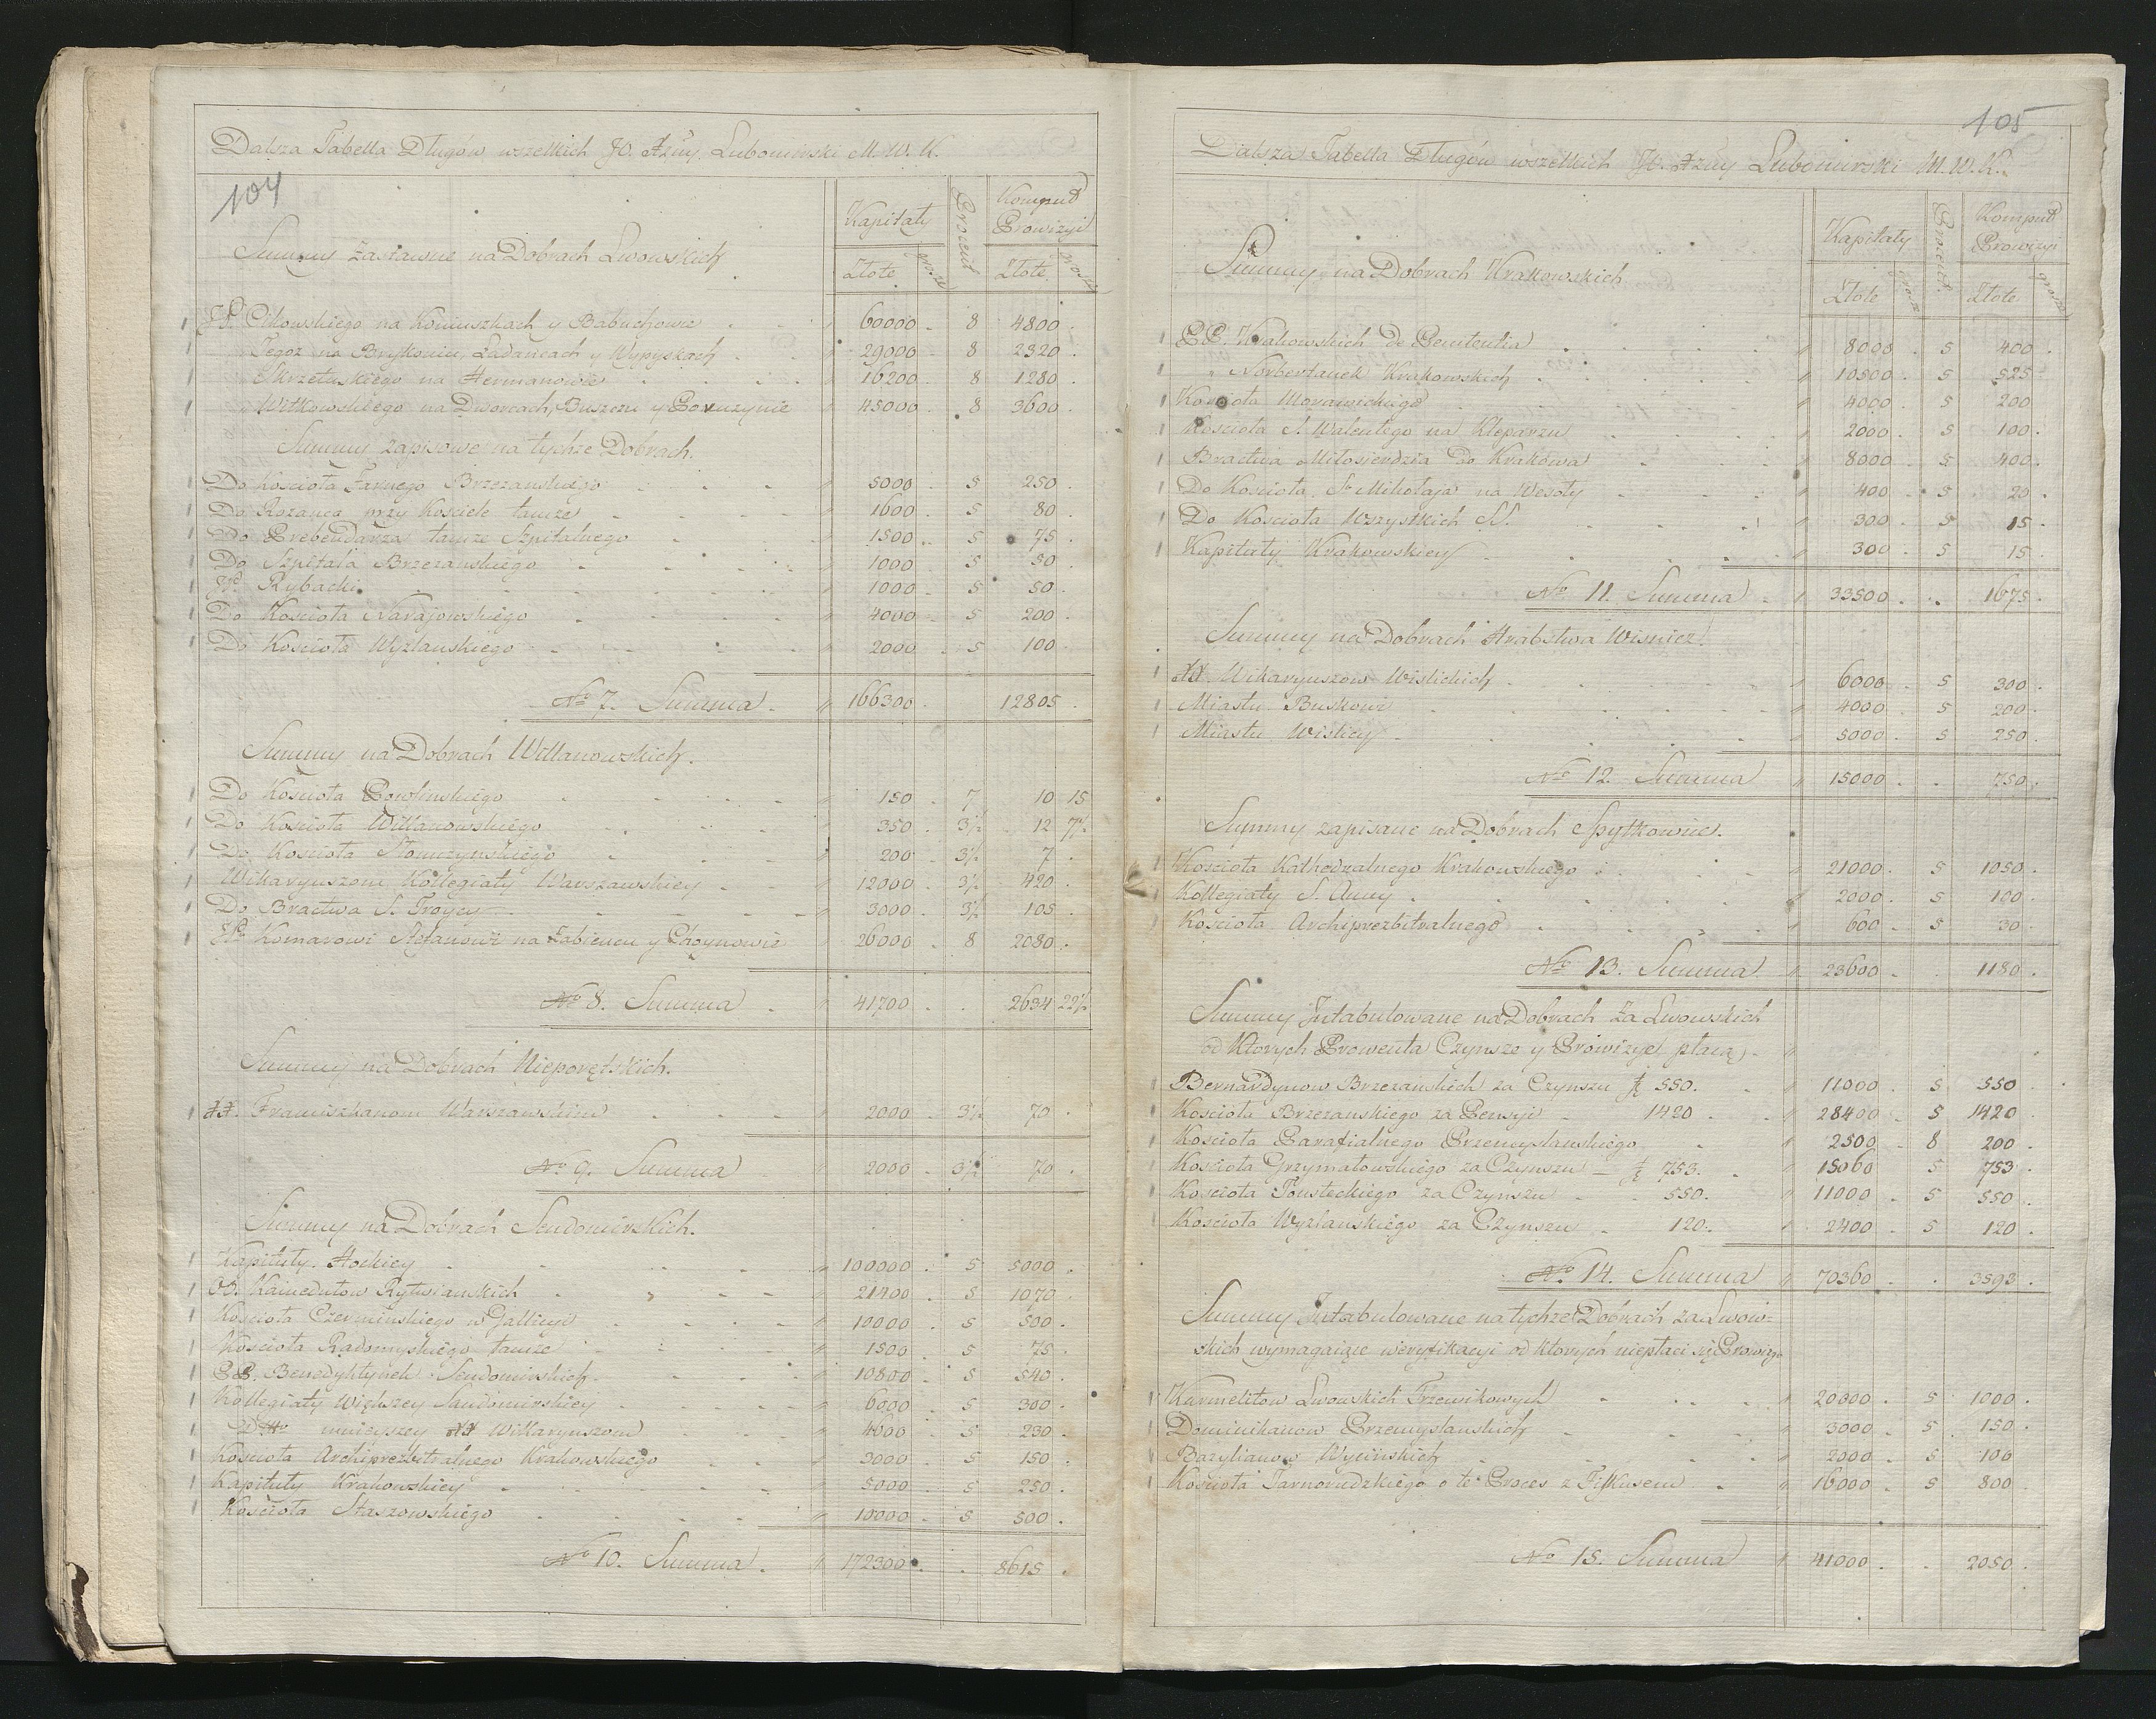 Dalsza Tabella Długów wszelkich JO. Xżney Lubomirski M. W. K.
104
Kapitały Procent Komput Prowizyi
Summy Zastawne na Dobrach Lwowskich
Złote grosze Złote grosze
1 JP. Cikowskiego na Koniuszkach y Babuchowie 60000 8 4800
1 Tegoż na Brykoniu, Ładańcach y Wypyskach 29000 8 2320
1 Skrzetuskiego na Hermanowie 16200 8 1280
1 Witkowskiego na Dworcach, Buszczu y Poruczynie 45000 8 3600
Summy zapisowe na tychże Dobrach.
1 Do Kościoła Farnego Brzezanskiego 5000 5 250
1 Do Rożańca przy Kościele tamże 1600 5 80
1 Do Prebendarza tamże Szpitalnego 1500 5 75
1 Do Szpitala Brzezanskiego 1000 5 50
1 Rybacki 1000 5 50
1 Do Kościoła Narajowskiego 4000 5 200
1 Do Kościoła Wyzlanskiego 2000 5 100
No 7. Summa 166300 12805
Summy na Dobrach Willanowskich.
1 Do Kościoła Powsinskiego 150 7 10 15
1 Do Kościoła Willanowskiego 350 3½ 12 7½
1 Do Kościoła Słomczynskiego 200 3½ 7
1 Wikaryuszom Kollegiaty Warszawskiey 12000 3½ 420
1 Do Bractwa S. Troycy 3000 3½ 105
1 JP. Komarowi Stefanowi na Łabiencu y Choynowie 26000 8 2080
No 8. Summa 41700 2634 22½
Summy na Dobrach Nieporętskich.
1 XX. Franciszkanom Warszawskim 2000 3½ 70
No 9. Summa 2000 3½ 70
Summy na Dobrach Sendomirskich.
1 Kapituły 100000 5 5000
1 OO. Kamedułow Rytwianskich 21400 5 1070
1 Kościoła Czerminskiego w Gallicyi 10000 5 500
1 Kościoła Radomyskiego tamże 1500 5 75
1 PP. Benedyktynek Sendomirskich 10800 5 540
1 Kollegiaty Większey Sandomirskiey 6000 5 300
1 Dtto mnieyszey XX Wikaryuszom 4600 5 230
1 Kościoła Archiprezbitralnego Krakowskiego 3000 5 150
1 Kapituły Krakowskiey 5000 5 250
1 Kościoła Staszowskiego 10000 5 500
No 10. Summa 172300 8615
105
Dalsza Tabella Długów wszelkich JO. Xżney Lubomirski M. W. K.
Kapitały Procent Komput Prowizyi
Summy na Dobrach Krakowskich
Złote grosze Złote grosze
1 PP. Krakowskich de Penitentia 8000 5 400
1 " Norbertanek Krakowskich 10500 5 525
1 Kościoła Morawickiego 4000 5 200
1 Kościoła S. Walentego na Kleparzu 2000 5 100
1 Bractwa Miłosierdzia do Krakowa 8000 5 400
1 Do Kościoła So Mikołaja na Wesoły 400 5 20
1 Do Kościoła Wszystkich SS. 300 5 15
1 Kapituły Krakowskiey 300 5 15
No 11. Summa 33500 1675
Summy na Dobrach Hrabstwa Wisnicz.
1 XX Wikaryuszow Wislickich 6000 5 300
1 Miastu Buskowi 4000 5 200
1 Miastu Wislicy 5000 5 250
No 12. Summa 15000 750
Summy zapisane na Dobrach Spytkowice.
1 Kościoła Kathedralnego Krakowskiego 21000 5 1050
1 Kollegiaty S. Anny 2000 5 100
1 Kościoła Archiprezbitralnego 600 5 30
No 13. Summa 23600 1180
Summy Intabulowane na Dobrach za Lwowskich
od ktorych Prowenta Czynsze y Prowizye płacą
1 Bernardynow Brzezanskich za Czynszu zł 550. 11000 5 550
1 Kościoła Brzezanskiego za Pensyi 1420 28400 5 1420
1 Kościoła Parafialnego Przemyslanskiego 2500 8 200
1 Kościoła Grzymałowskiego za Czynszu zł 753. 15060 5 753
1 Kościoła Tousteckiego za Czynszu 550. 11000 5 550
1 Kościoła Wyzlanskiego za Czynszu 120. 2400 5 120
No 14. Summa 70360 3593
Summy Intabulowane na tychże Dobrach za Lwow-
skich wymagaiące weryfikacyi od ktorych niepłaci się Prowizya
1 Karmelitow Lwowskich Trzewikowych 20000 5 1000
1 Dominikanow Przemyslanskich 3000 5 150
1 Bazylianow 2000 5 100
1 Kościoła Tarnorudzkiego o te Proces z Fiskusem 16000 5 800
No 15. Summa 41000 2050